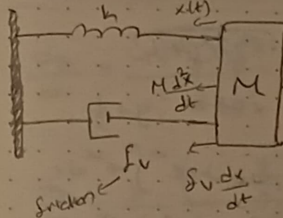 k
x(t)
M d²x/dt
M
fv
friction
fv dx/dt